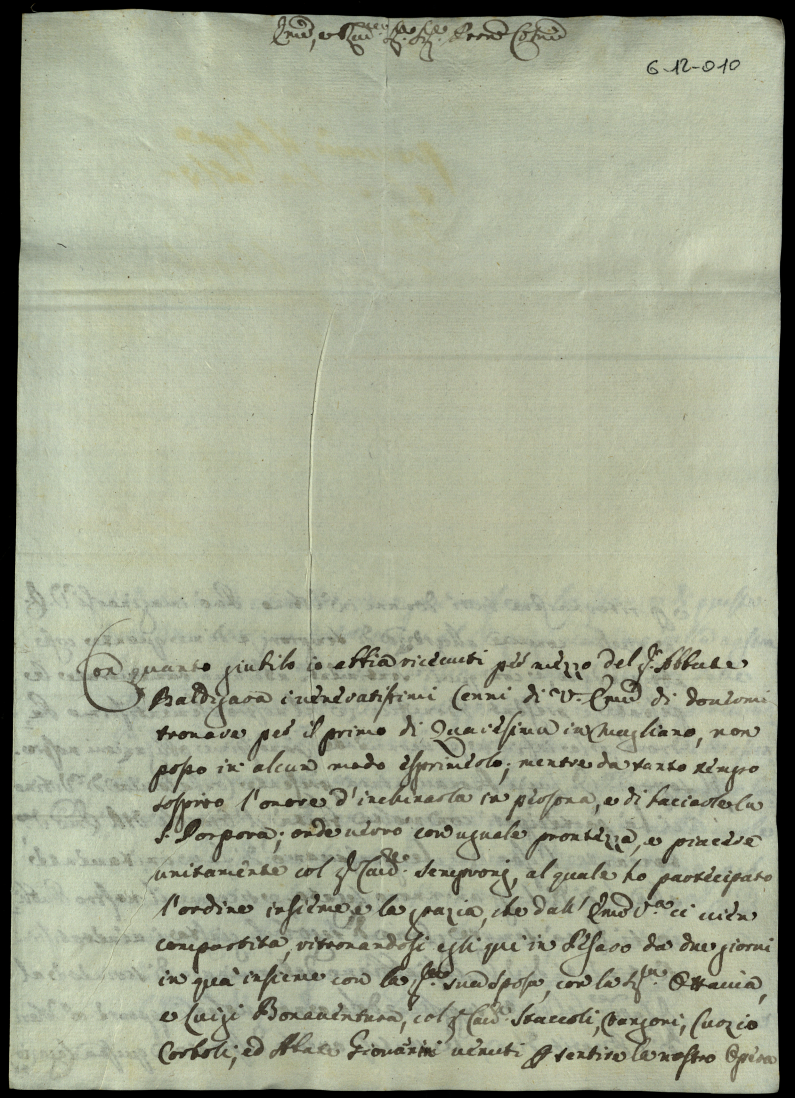 Em̃o, e Rev.mo Sig.re Sig.re Prone Col.mo
6-12-010
Con quanto giubilo io abbia ricevuti per mezzo del Sr. Abbate
Baldigara i veneratissimi Cenni di V. Em̃a di dovermi
trovare per il primo di Quaresima in Magliano, non
posso in alcun modo esprimerlo; mentre da tanto tempo
sospiro l'onore d'inchinarla in persona, e di bacciarle la
S. Porpora; onde verrò con uguale prontezza, e piacere
unitamente col Sr. Cav.re Semproni, al quale ho partecipato
l'ordine insieme e la grazia, che dall' Em̃a V.a ci vien
compartita, ritrovandosi egli quì in Pesaro da due giorni
in quà insieme con la Sra. sua sposa, con la Sra. Ottavia,
e Luigi Bonaventura, col Sr. Cav.re Staccoli, Curzio
Corboli, ed Abate Giovanni venuti sentire la nostra Opera